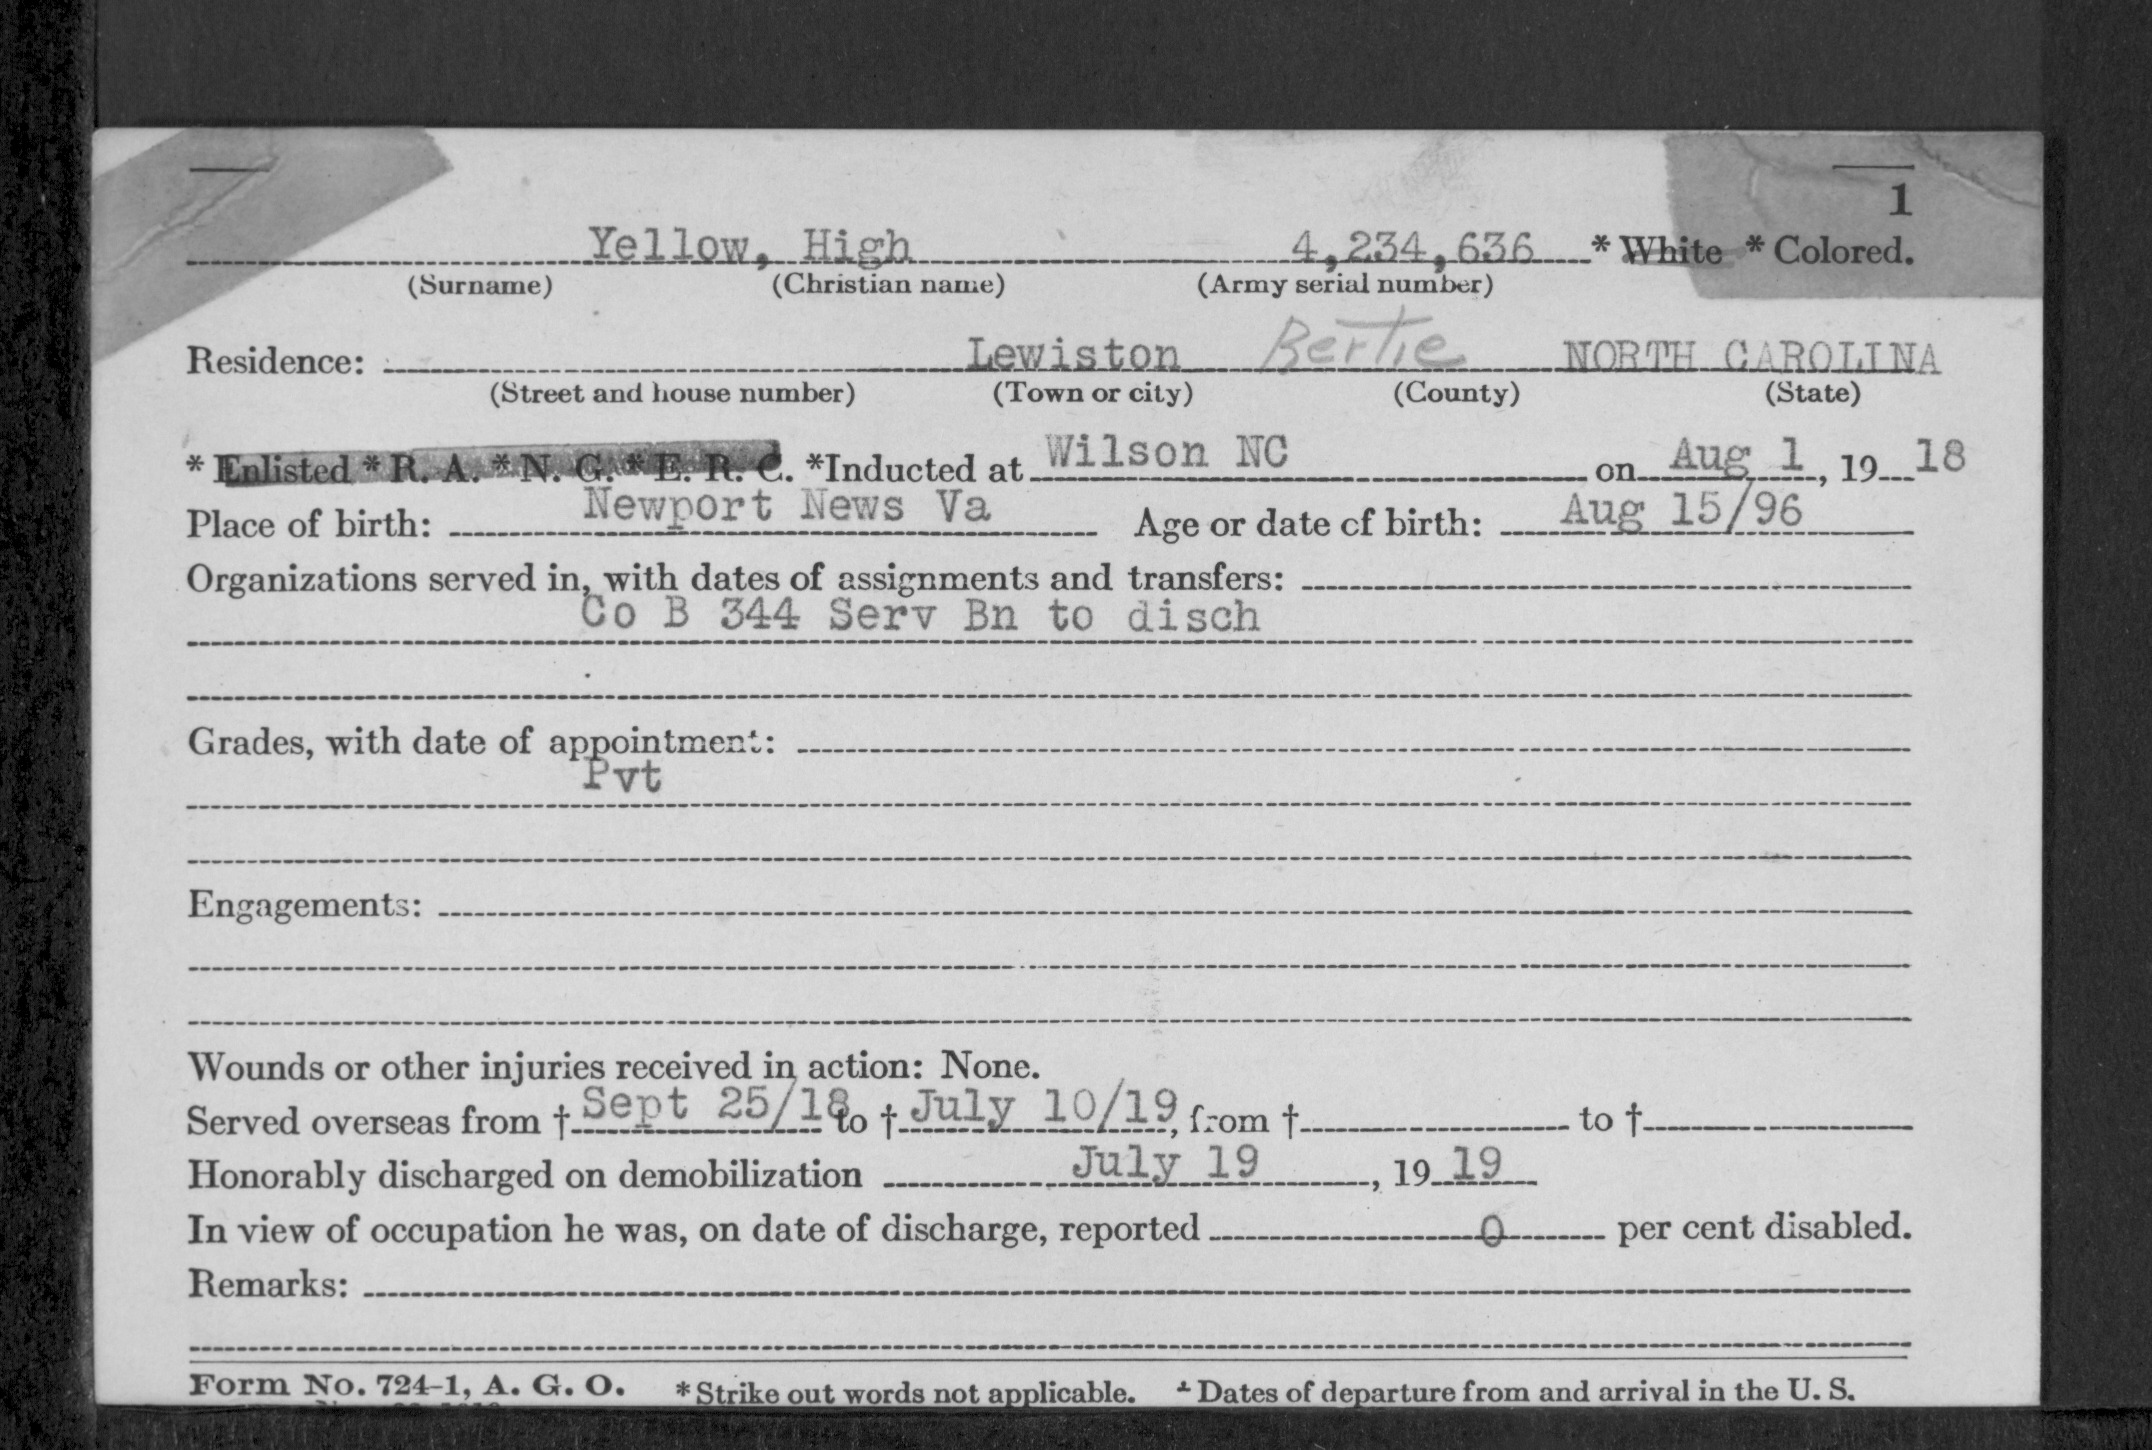 1
Yellow, High 4,234,636 * White * Colored.
(Surname) (Christian name) (Army serial number)
Residence: Lewiston Bertie NORTH CAROLINA
(Street and house number) (Town or city) (County) (State)
* Enlisted * R. A. * N. G. * E. R. C. *Inducted at Wilson NC on Aug 1, 19 18
Place of birth: Newport News Va Age or date of birth: Aug 15/96
Organizations served in, with dates of assignments and transfers:
Co B 344 Serv Bn to disch
Grades, with date of appointment:
Pvt
Engagements:
Wounds or other injuries received in action: None.
Served overseas from † Sept 25/18 to † July 10/19, from † to †
Honorably discharged on demobilization July 19, 19 19
In view of occupation he was, on date of discharge, reported 0 per cent disabled.
Remarks:
Form No. 724-1, A. G. O. * Strike out words not applicable. † Dates of departure from and arrival in the U. S.